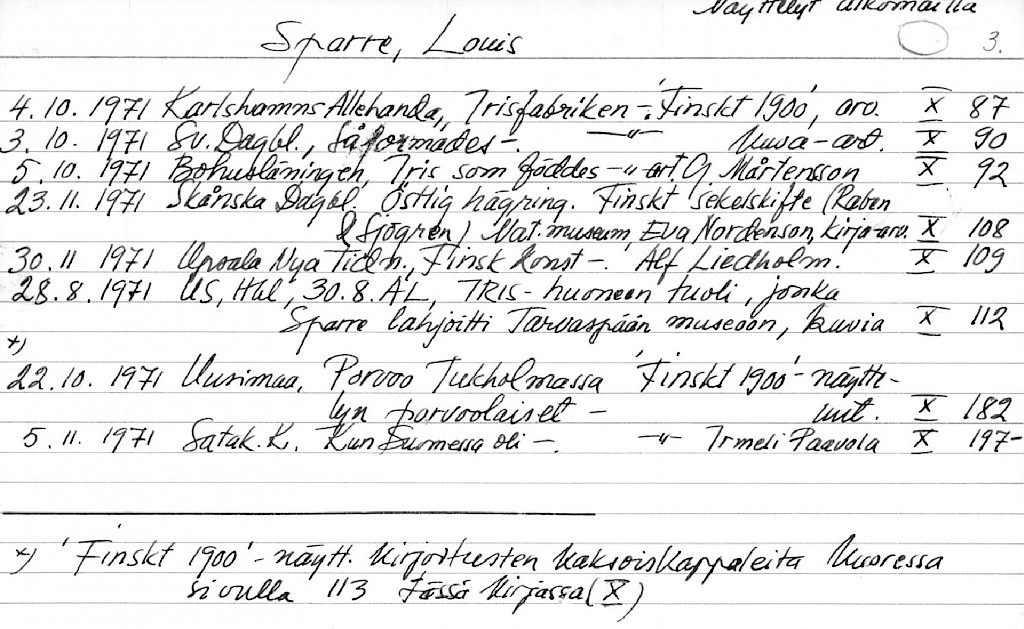 Näyttelyt ulkomailla
Sparre, Louis 3.
4.10.1971 Karlshamns Allehanda, Irisfabriken -. 'Finskt 1900', arv. X 87
3.10.1971 Sv. Dagbl., Så formades -. —"— kuva-art. X 90
5.10.1971 Bohusläningen, Iris som föddes -"- art. G Mårtensson X 92
23.11.1971 Skånska Dagbl. Östlig hägring. Finskt sekelskifte (Raben
& Sjögren) Nat.museum, Eva Nordenson, kirja-arv. X 108
30.11 1971 Upsala Nya Tidn., Finsk konst -. Alf Liedholm. X 109
28.8.1971 US, Hbl, 30.8. ÅL, IRIS-huoneen tuoli, jonka
Sparre lahjoitti Tarvaspään museoon, kuvia X 112
x)
22.10.1971 Uusimaa, Porvoo Tukholmassa 'Finskt 1900'-näytt-
lyn porvoolaiset - uut. X 182
5.11.1971 Satak. K. Kun Suomessa oli -. —"— Irmeli Paavola X 197-
x) 'Finskt 1900'-näytt. kirjoitusten kaksoiskappaleita kuoressa
sivulla 113 tässä kirjassa (X)